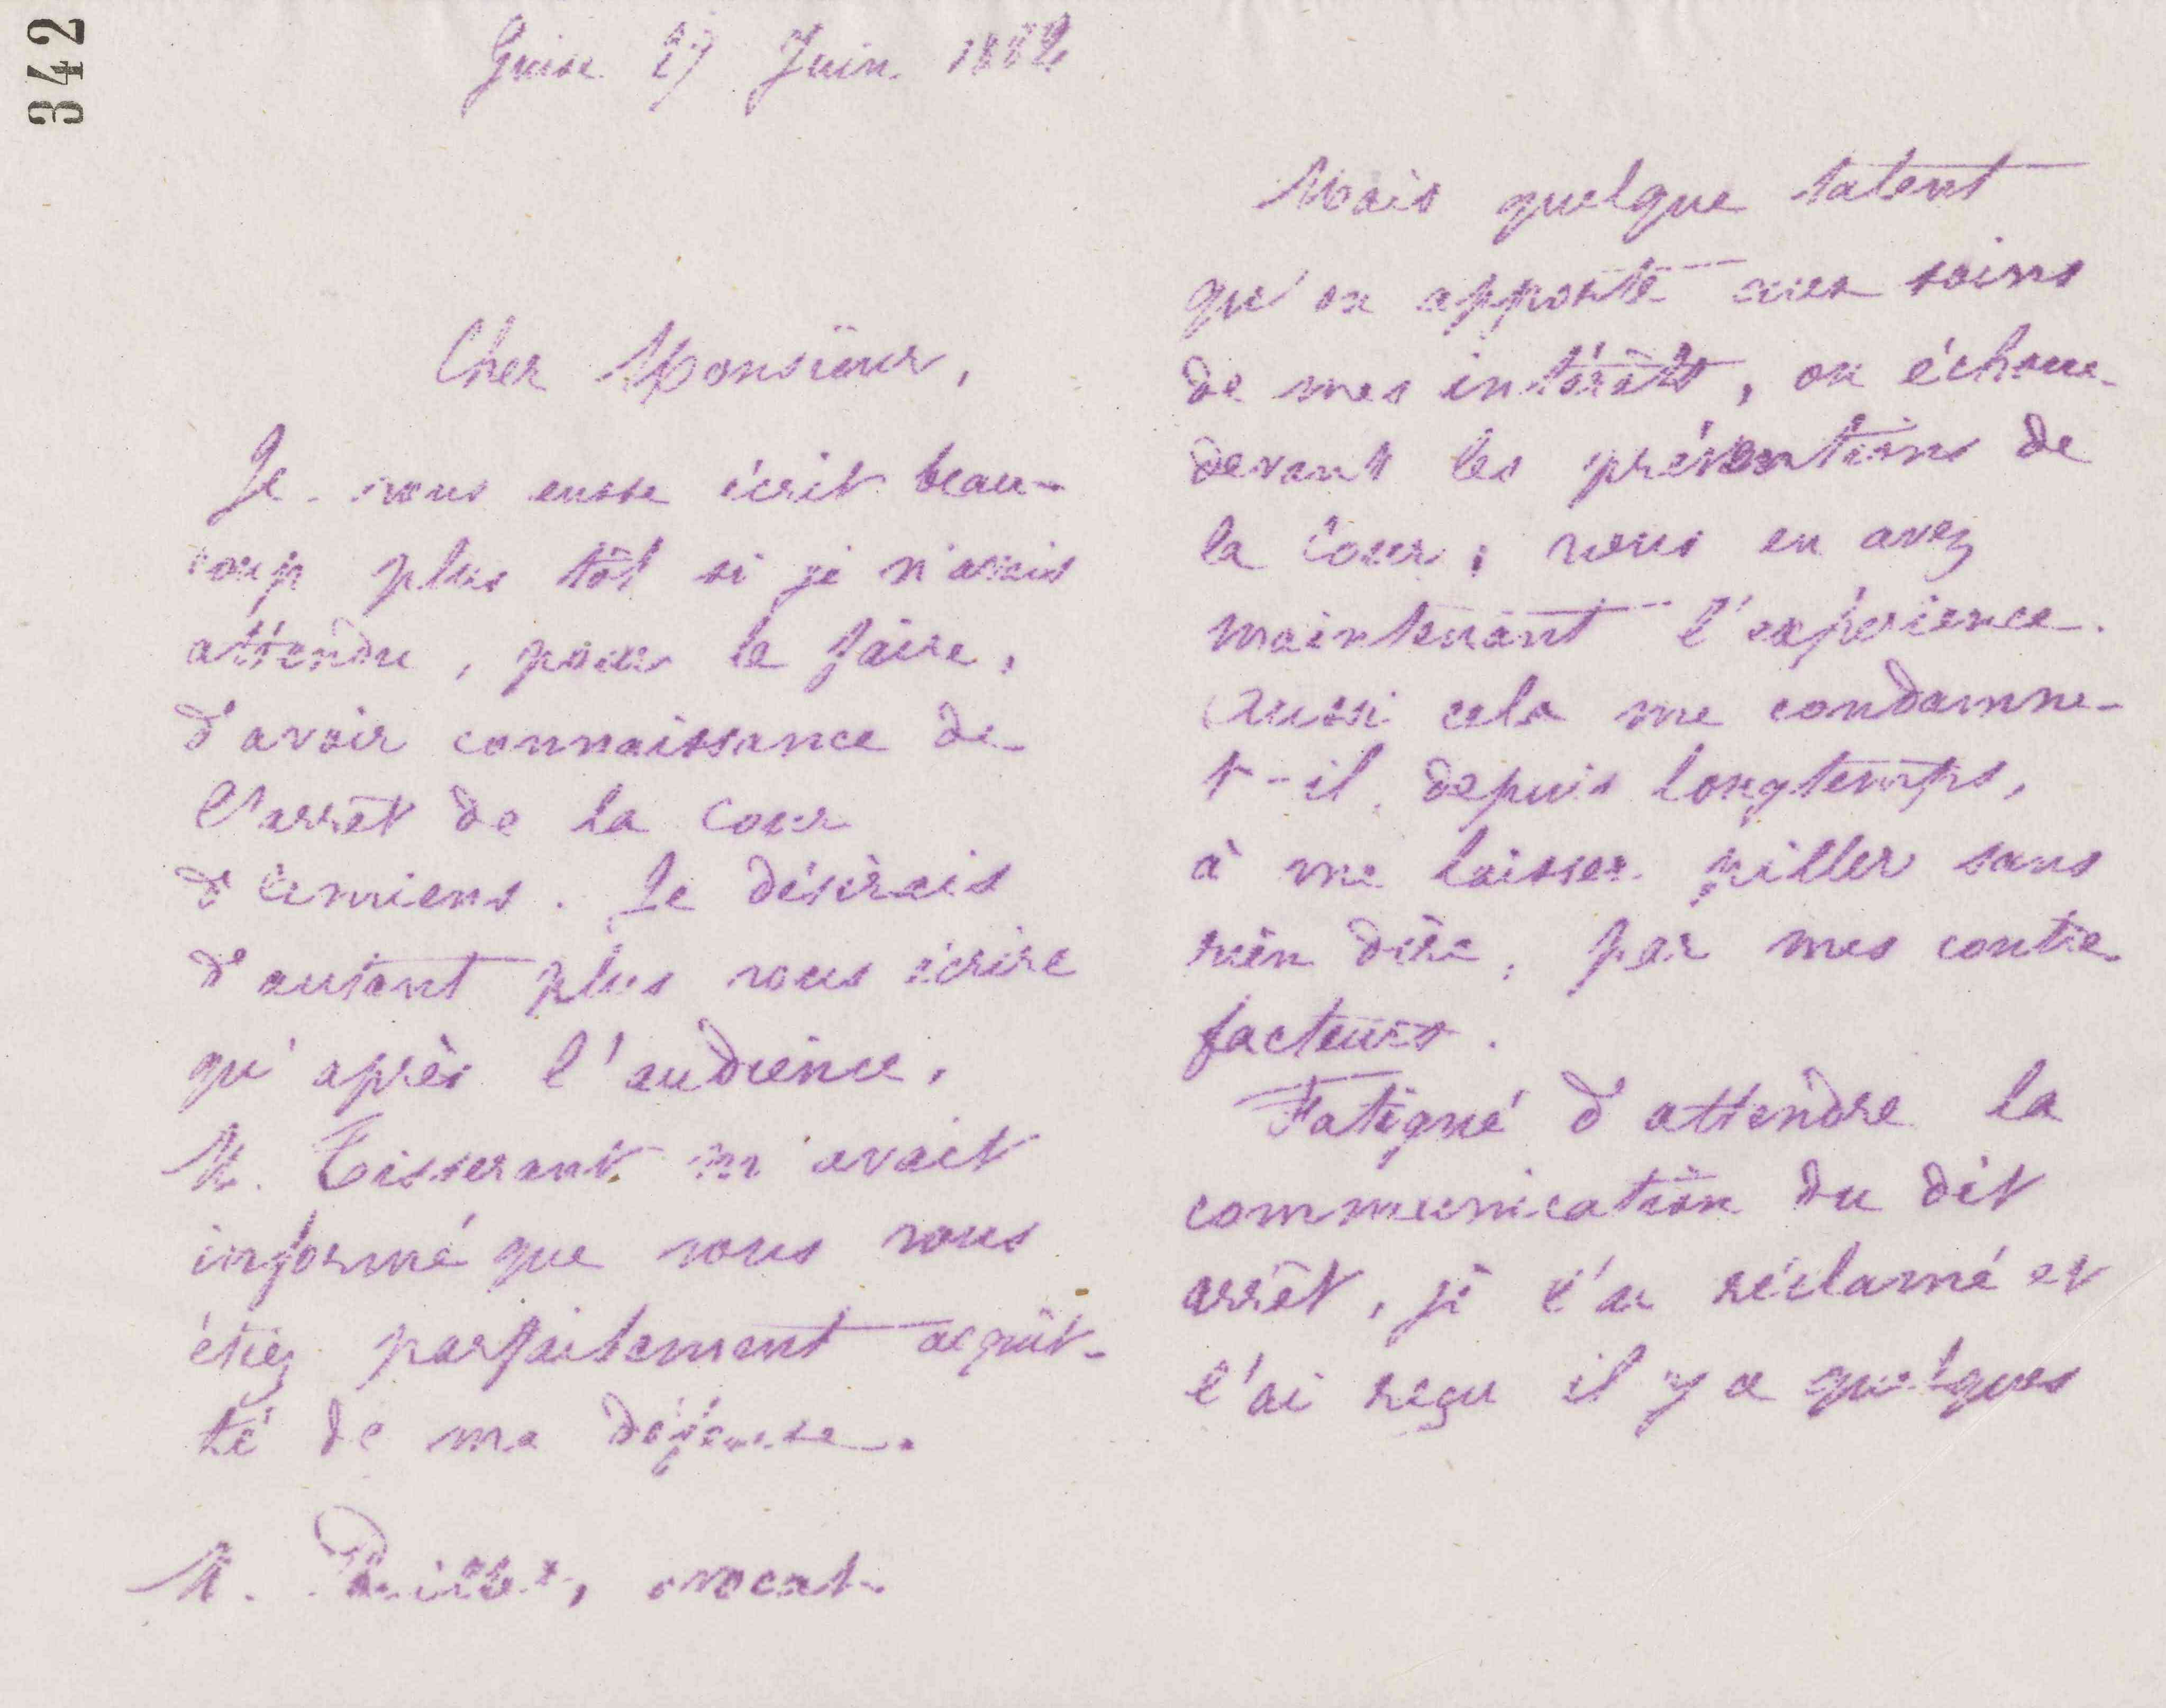 342
Guise 27 Juin 1882
Cher Monsieur,
Je vous eusse écrit beau-
coup plus tôt si je n'avais
attendu, pour le faire,
d'avoir connaissance de
l'arrêt de la Cour
d'Amiens. Je désirais
d'autant plus vous écrire
qu'après l'audience,
M. Tisserant m'avait
informé que vous vous
étiez parfaitement acquit-
té de ma défense.
M. Pouillet, avocat
Mais quelque talent
qu'on apporte aux soins
de mes intérêts, on échoue
devant les préventions de
la Cour; vous en avez
maintenant l'expérience.
Aussi cela me condamne-
t-il, depuis longtemps,
à me laisser piller sans
rien dire, par mes contre
facteurs.
Fatigué d'attendre la
communication du dit
arrêt, je l'ai réclamé et
l'ai reçu il y a quelques